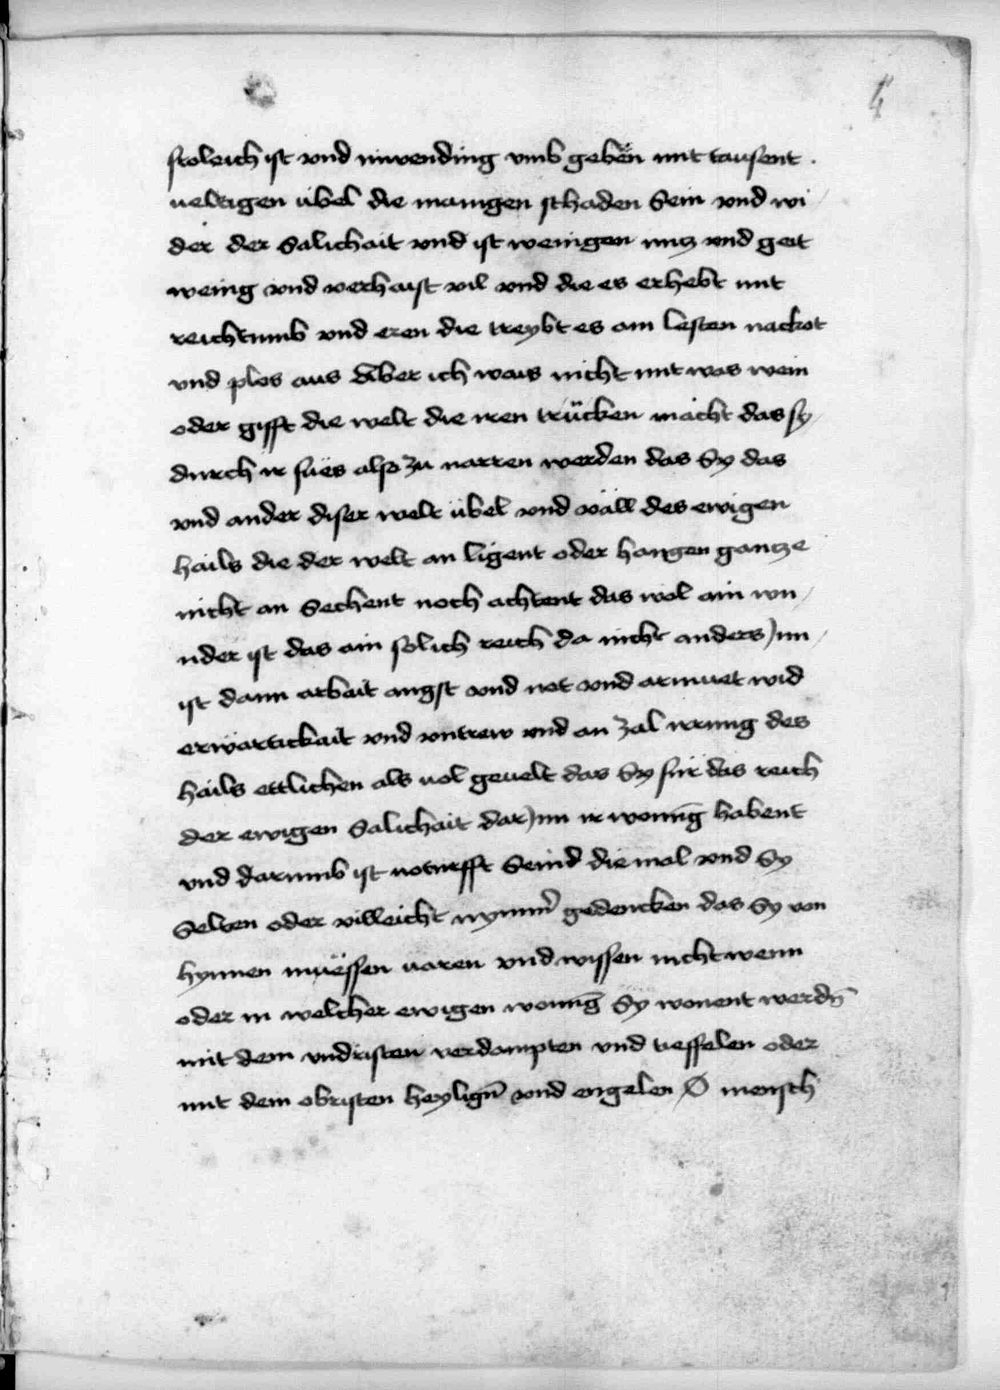 4
froleich ist vnd inwending vmb geben mit tausent .
ueltigen übel die manigen schaden Sein vnd wi /
der der Salichait vnd ist wenigen nucz vnd geit
wenig vnd verhaist vil vnd die es erhebt mit
reichtumb vnd eren die treybt es am lesten nackot
vnd plos aus aber ich wais nicht mit was wein
oder gifft die welt die iren trücken macht das sy
durch ir sües also zu narren werden das Sy das
vnd ander diser welt übel vnd väll des ewigen
hails die der welt an ligent oder hangen gancze
nicht an Sechent noch achtent das wol ain wu /
nder ist das ain solich reich da nicht anders Inn /
ist dann arbait angst vnd not vnd armuet wid
erwärtickait vnd vntrew vnd an zal irrung des
hails ettlichen als uol geuelt das Sy für das reich
der ewigen Salichait dar Inn ir wonūg habent
vnd darumb ist noturfft Seind die mal vnd Sy
Selten oder villeicht nymm̄ gedencken das Sy von
hynnen muëssen uaren vnd wissen nicht wenn
oder in welcher ewigen wonūg Sy wonent werdn̄
mit dem vndristen verdampten vnd tieffelen oder
mit dem obristen heylign̄ vnd engelen O mensch